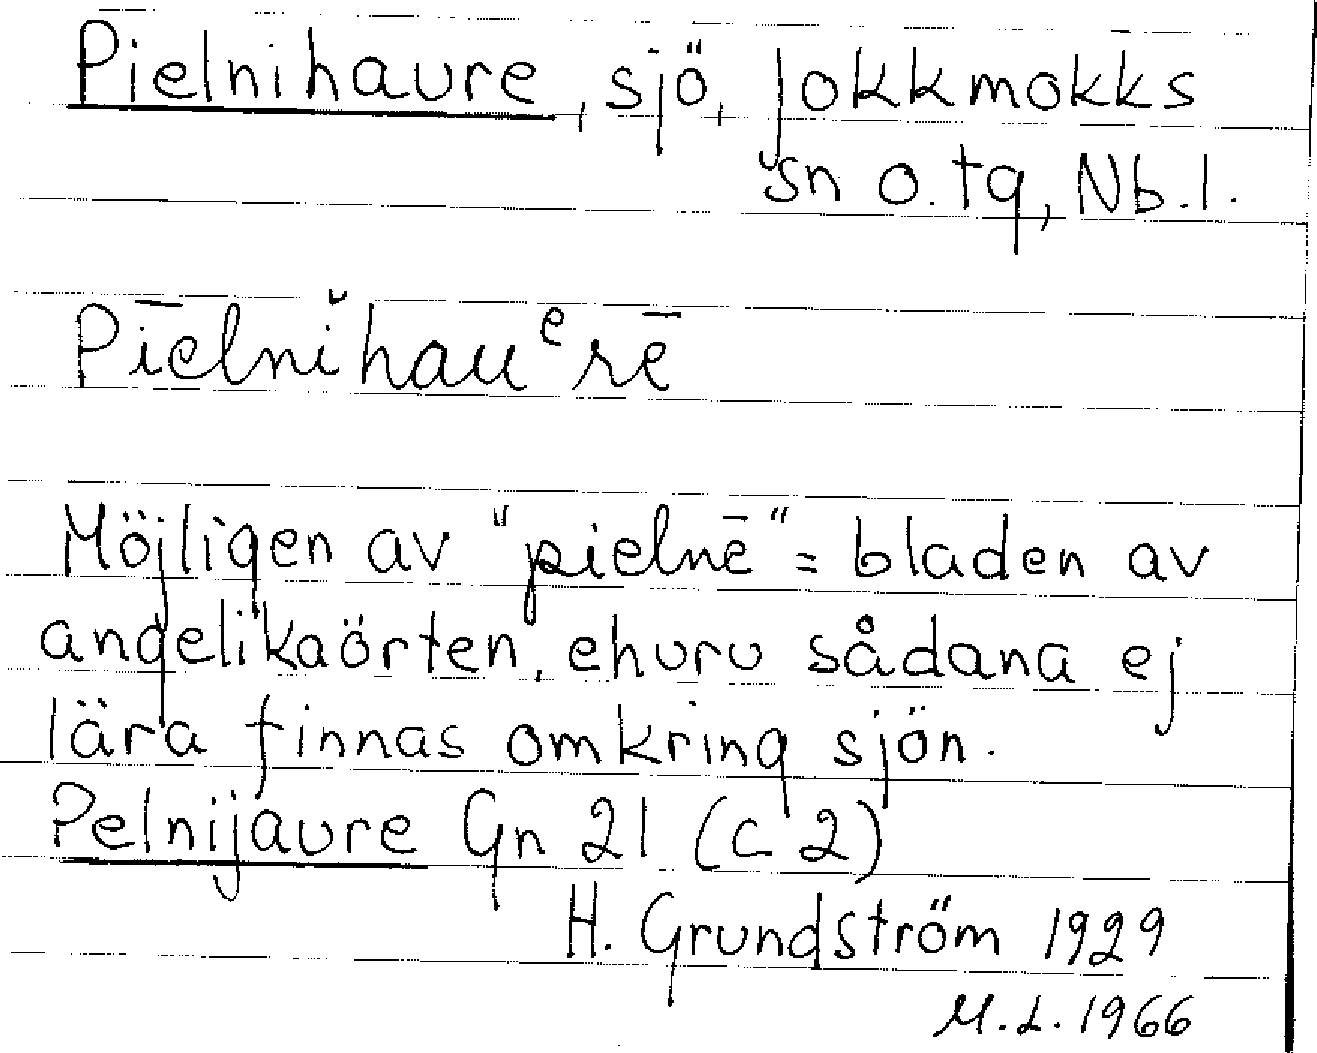 Pielnihaure, sjö, Jokkmokks
sn o. tg, Nb.l.
Pīelnĭhauᵉrē
Möjligen av "pielnē" = bladen av
angelikaörten, ehuru sådana ej
lära finnas omkring sjön.
Pelnijaure Gn 21 (C 2)
H. Grundström 1929
M.L. 1966